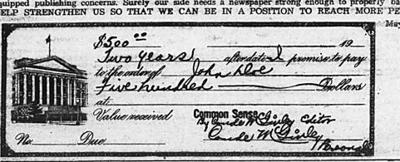 quipped publishing concerns. Surely our side needs a newspaper strong enough to properly ba
ELP STRENGTHEN US SO THAT WE CAN BE IN A POSITION TO REACH MORE PE
May
$500.00 19
Two years after date I promise to pay
to the order of John Doe
Five hundred Dollars
at
Value received Common Sense
By Conde McGinley Editor
No. Due Conde McGinley
Personal